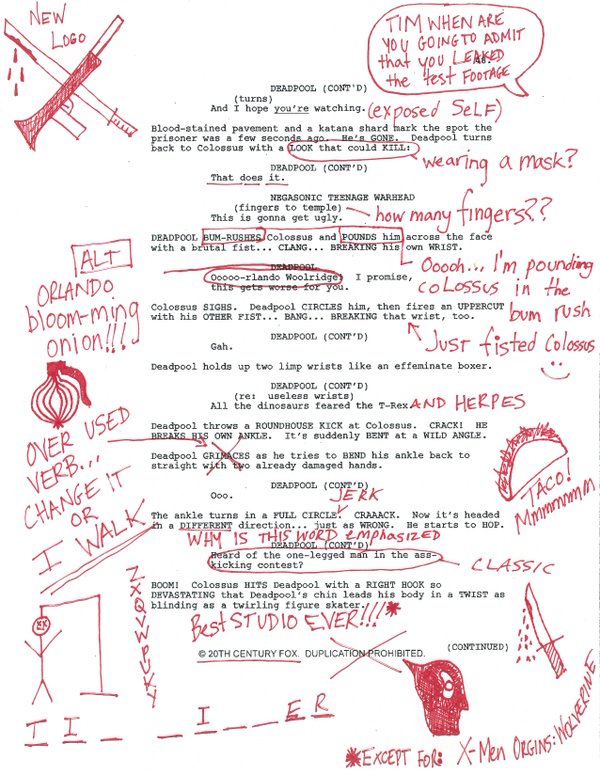 NEW
LOGO
TIM WHEN ARE
YOU GOING TO ADMIT
that you LEAKED
the test FOOTAGE
DEADPOOL (CONT'D)
(turns)
And I hope you're watching. (exposed SELF)
Blood-stained pavement and a katana shard mark the spot the
prisoner was a few seconds ago. He's GONE. Deadpool turns
back to Colossus with a LOOK that could KILL:
wearing a mask?
DEADPOOL (CONT'D)
That does it.
NEGASONIC TEENAGE WARHEAD
(fingers to temple)
This is gonna get ugly.
how many fingers??
DEADPOOL BUM-RUSHES Colossus and POUNDS him across the face
with a brutal fist... CLANG... BREAKING his own WRIST.
Ooooh... I'm pounding
coLossus in the
bum rush
ALT
ORLANDO
bloom-ming
onion!!!!
DEADPOOL
Ooooo-rlando Woolridge! I promise,
this gets worse for you.
Colossus SIGHS. Deadpool CIRCLES him, then fires an UPPERCUT
with his OTHER FIST... BANG... BREAKING that wrist, too.
Just fisted Colossus
DEADPOOL (CONT'D)
Gah.
Deadpool holds up two limp wrists like an effeminate boxer.
DEADPOOL (CONT'D)
(re: useless wrists)
All the dinosaurs feared the T-Rex AND HERPES
Deadpool throws a ROUNDHOUSE KICK at Colossus. CRACK! HE
BREAKS HIS OWN ANKLE. It's suddenly BENT at a WILD ANGLE.
OVER USED
VERB...
CHANGE IT
OR
I WALK
Deadpool GRIMACES as he tries to BEND his ankle back to
straight with two already damaged hands.
TACO!
Mmmmmmm
DEADPOOL (CONT'D)
Ooo.
JERK
The ankle turns in a FULL CIRCLE. CRAAACK. Now it's headed
in a DIFFERENT direction... just as WRONG. He starts to HOP.
WHY IS THIS WORD emphasized
DEADPOOL (CONT'D)
Heard of the one-legged man in the ass-
kicking contest?
CLASSIC
BOOM! Colossus HITS Deadpool with a RIGHT HOOK so
DEVASTATING that Deadpool's chin leads his body in a TWIST as
blinding as a twirling figure skater.
Best STUDIO EVER!!!*
(CONTINUED)
© 20TH CENTURY FOX. DUPLICATION PROHIBITED.
T I _ _ _ I _ _ _ E R
*EXCEPT FOR: X-Men ORGINS: WOLVERINE